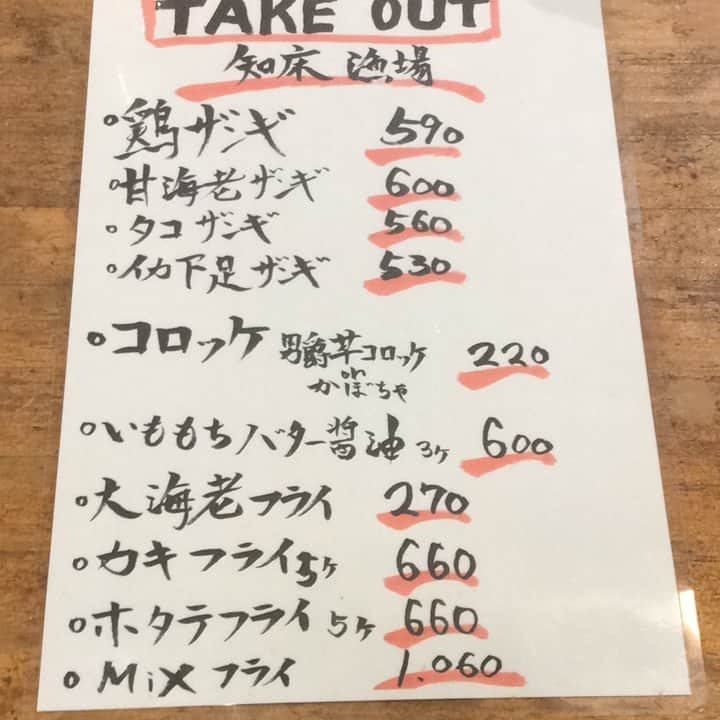 TAKE OUT
知床 漁場
鶏ザンギ 590
甘海老ザンギ 600
タコザンギ 560
イカ下足ザンギ 530
コロッケ 男爵芋コロッケ 220
or
かぼちゃ
いももちバター醤油 3ヶ 600
大海老フライ 270
カキフライ 5ヶ 660
ホタテフライ 5ヶ 660
Mixフライ 1.060